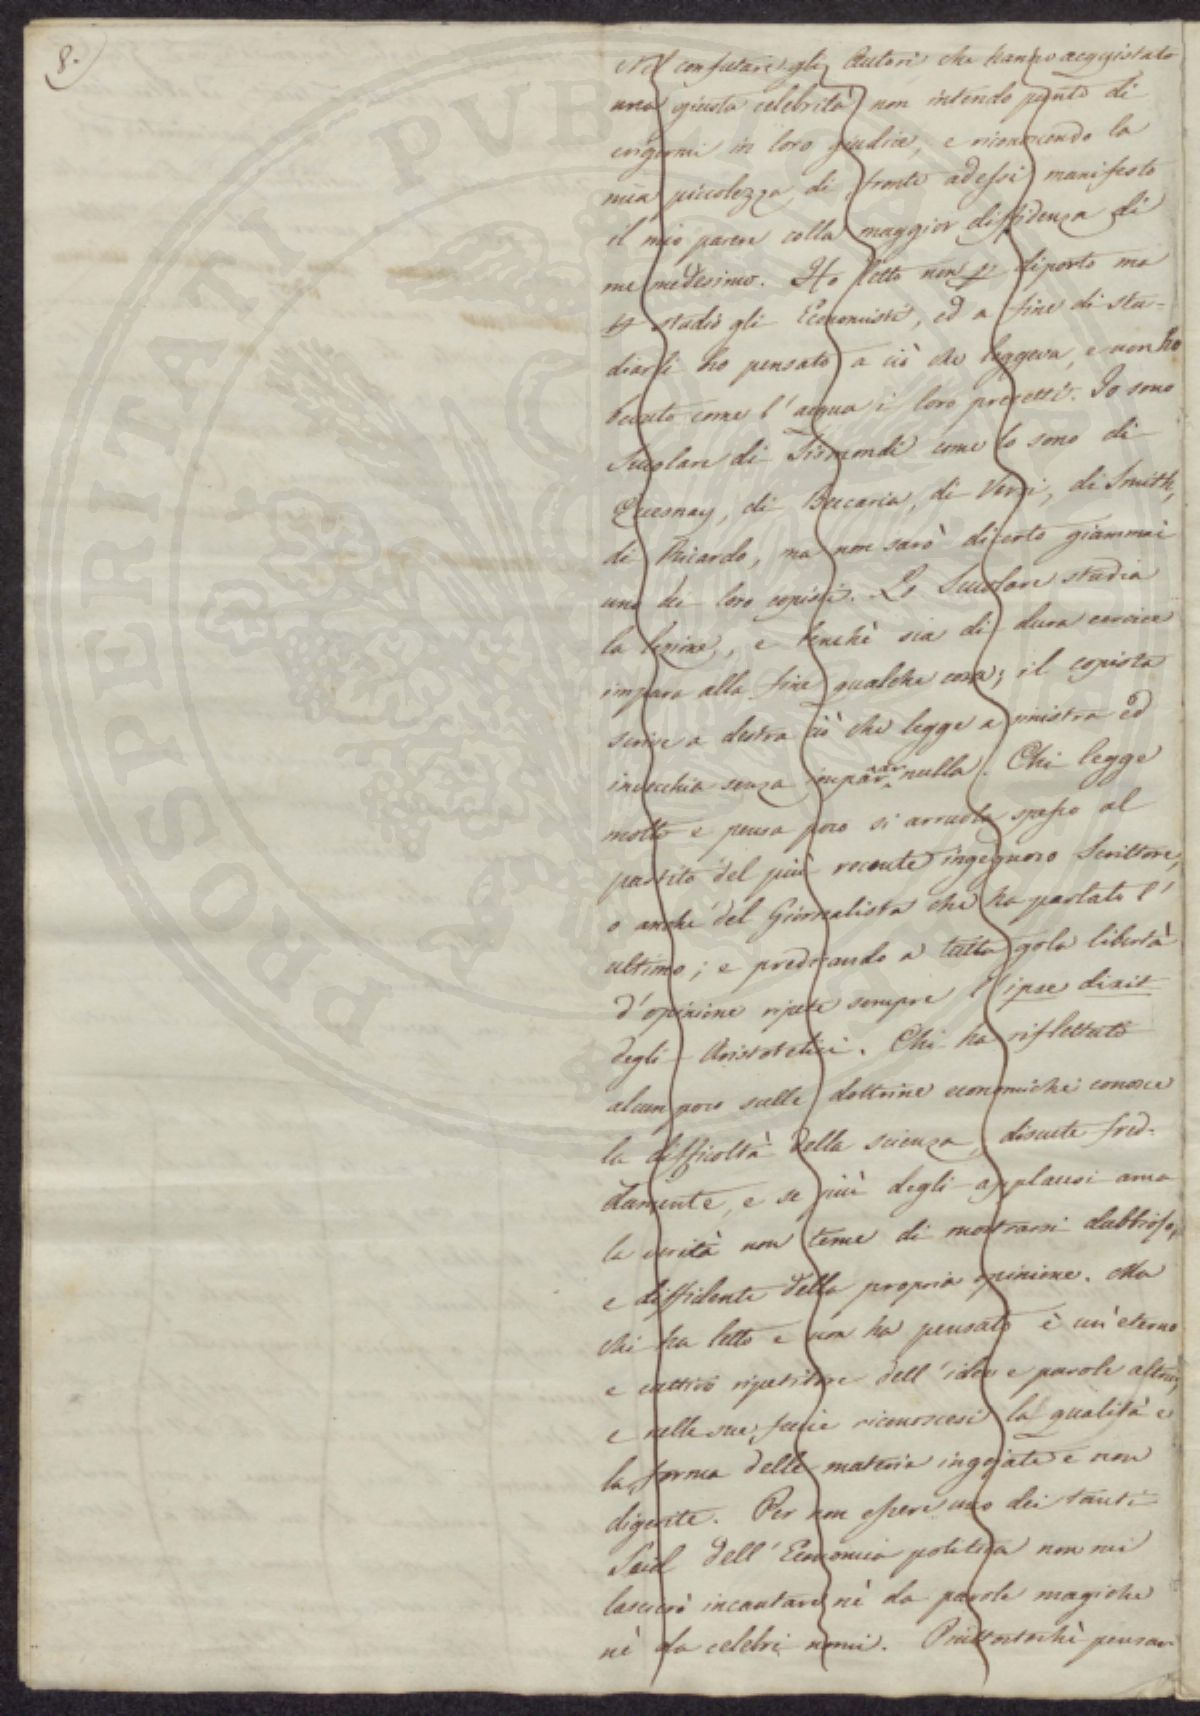 8.
Nel confutare gli Autori che hanno acquistato
una giusta celebrità non intendo punto di
erigermi in loro giudice, e riconoscendo la
mia piccolezza di fronte adessi manifesto
il mio parere colla maggior diffidenza di
me medesimo. Ho letto non p. diporto ma
p. studio gli Economisti, ed a fine di stu-
diarli ho pensato a ciò che leggeva, e non ho
bevuto come l'acqua i loro precetti. Io sono
Scolare di Sismondi come lo sono di
Quesnay, di Beccaria, di Verri, di Smith,
di Ricardo, ma non sarò di certo giammai
uno dei loro copisti. Lo Scolare studia
la lezione, e benchè sia di dura cervice
impara alla fine qualche cosa; il copista
scrive a destra ciò che legge a sinistra ed
invecchia senza imparar nulla. Chi legge
molto e pensa poco si arruola spesso al
partito del più recente ingegnoso Scrittore,
o anche del Giornalista che ha parlato l'
ultimo; e predicando a tutta gola libertà
d'opinione ripete sempre l'ipse dixit
degli Aristotelici. Chi ha riflettuto
alcun poco sulle dottrine economiche conosce
la difficoltà della scienza, discute fred-
damente, e se più degli applausi ama
la verità non teme di mostrarsi dubbioso,
e diffidente della propria opinione. Ma
chi ha letto e non ha pensato è un'eterno
e cattivo ripetitore dell'idee e parole altrui,
e nelle sue fecie riconoscesi la qualità e
la forma delle materia ingojate e non
digerite. Per non essere uno dei tanti
Seid dell'Economia politica non mi
lascierò incantare nè da parole magiche
nè da celebri nomi. Piuttostochè pensar
PROSPERITATI PUBLICAE